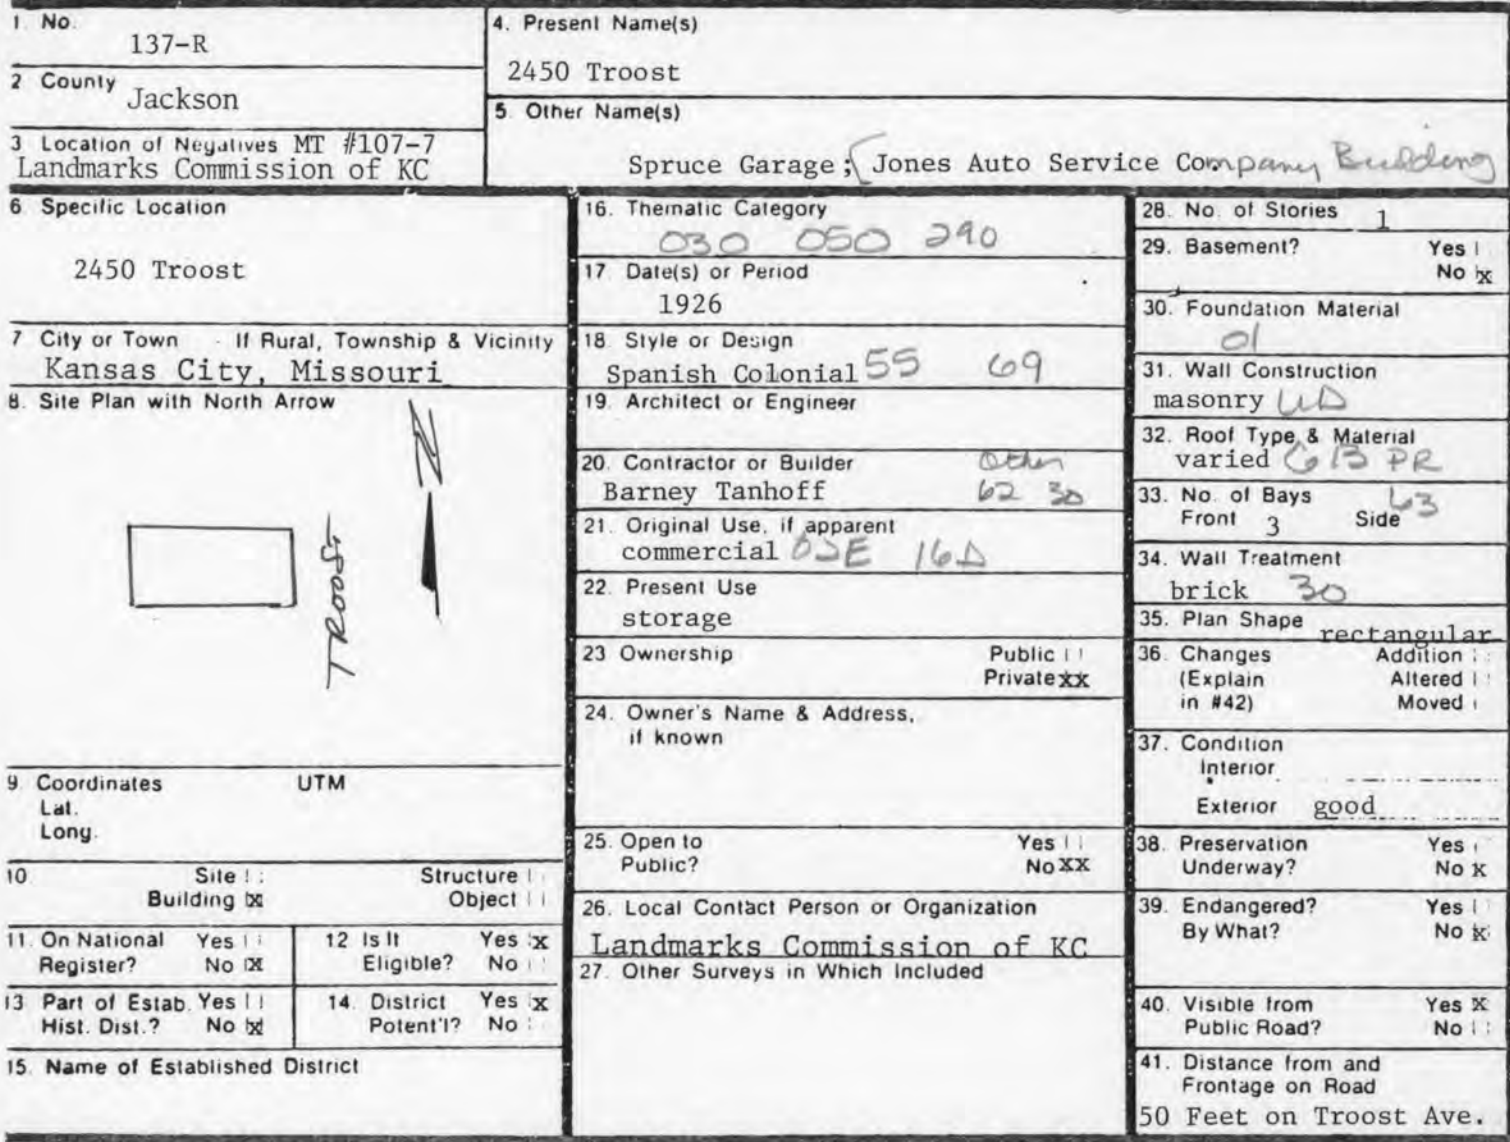 1. No.
137-R
2 County Jackson
3 Location of Negatives MT #107-7
Landmarks Commission of KC
4. Present Name(s)
2450 Troost
5. Other Name(s)
Spruce Garage; Jones Auto Service Company Building
6 Specific Location
2450 Troost
7 City or Town If Rural, Township & Vicinity
Kansas City, Missouri
8. Site Plan with North Arrow
N
TROOST
9. Coordinates UTM
Lat.
Long.
10 Site Structure
Building x Object
11. On National Yes
Register? No x
12 Is It Yes x
Eligible? No
13 Part of Estab. Yes
Hist. Dist.? No x
14. District Yes x
Potent'l? No
15. Name of Established District
16. Thematic Category
030 050 290
17 Date(s) or Period
1926
18. Style or Design
Spanish Colonial 55 69
19. Architect or Engineer
20. Contractor or Builder Other
Barney Tanhoff 62 30
21. Original Use, if apparent
commercial 02E 16D
22. Present Use
storage
23 Ownership Public
Private xx
24. Owner's Name & Address,
if known
25. Open to Yes
Public? No XX
26. Local Contact Person or Organization
Landmarks Commission of KC
27. Other Surveys in Which Included
28. No. of Stories 1
29. Basement? Yes
No x
30. Foundation Material
01
31. Wall Construction
masonry UD
32. Roof Type & Material
varied GB PR
33. No. of Bays 63
Front 3 Side
34. Wall Treatment
brick 30
35. Plan Shape rectangular
36. Changes Addition
(Explain Altered
in #42) Moved
37. Condition
Interior
Exterior good
38. Preservation Yes
Underway? No x
39. Endangered? Yes
By What? No x
40. Visible from Yes x
Public Road? No
41. Distance from and
Frontage on Road
50 Feet on Troost Ave.